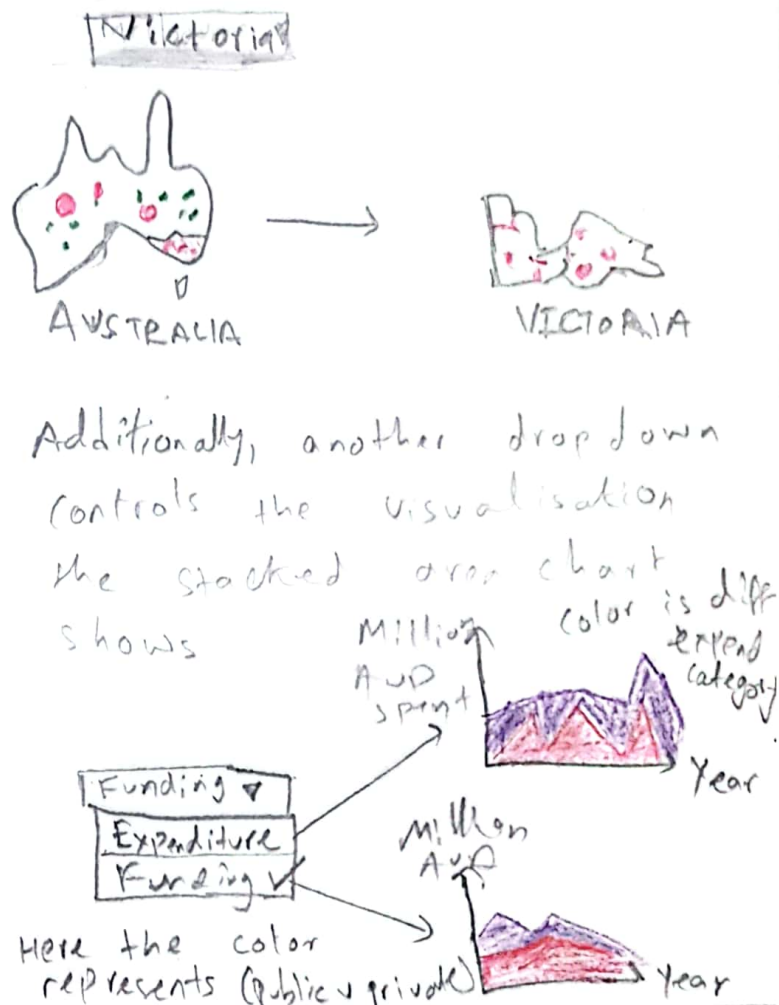 Viktoria
AUSTRALIA
VICTORIA
Additionally, another dropdown
controls the visualisation
the stacked area chart
shows
Million
AUD
spent
color is diff
expend
category.
Year
Funding
Expenditure
Funding
Million
AUD
Year
Here the color
represents (public v private)